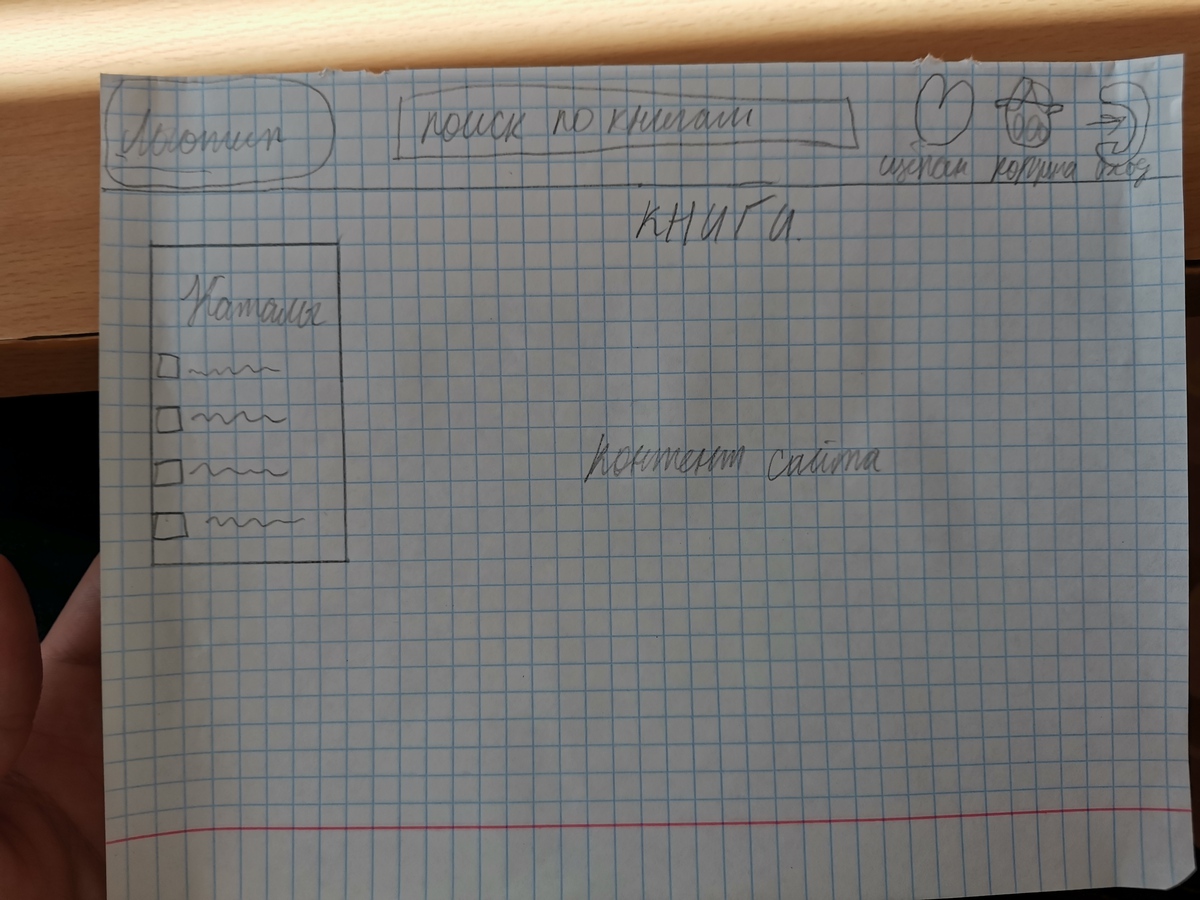 Логотип
поиск по книгам
корзина вход
КНИГИ.
Каталог
Контент сайта